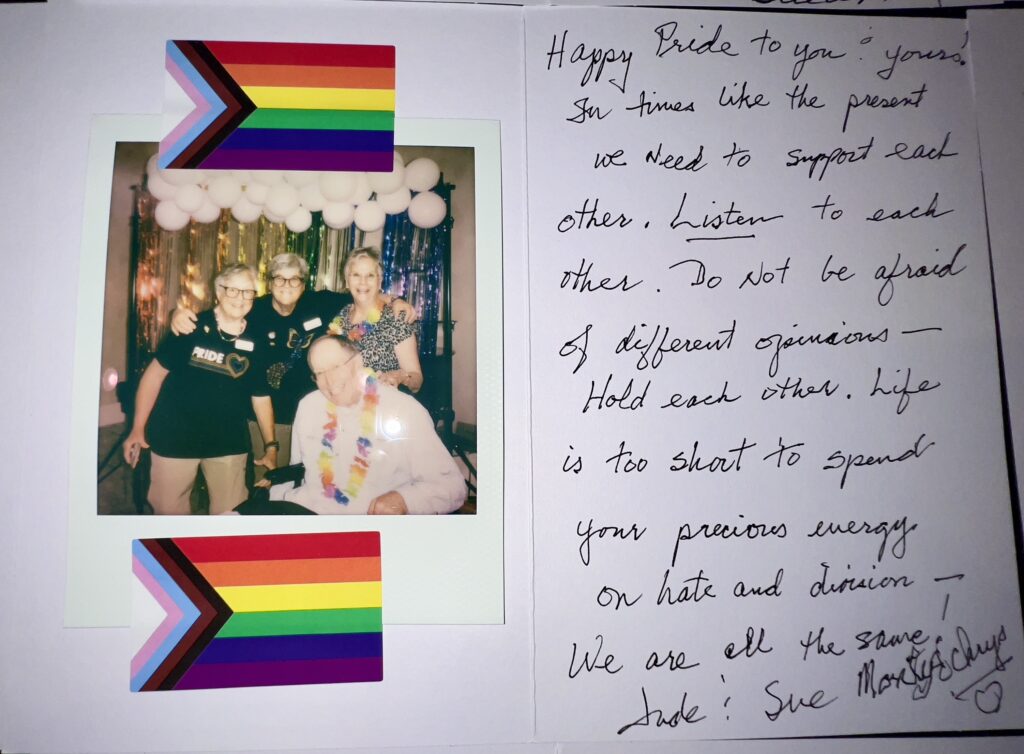 PRIDE
Happy Pride to you & yours!
In times like the present
we need to support each
other. Listen to each
other. Do Not be afraid
of different opinions —
Hold each other. Life
is too short to spend
your precious energy
on hate and division —
We are all the same!
Jude & Sue Marty & Chrys